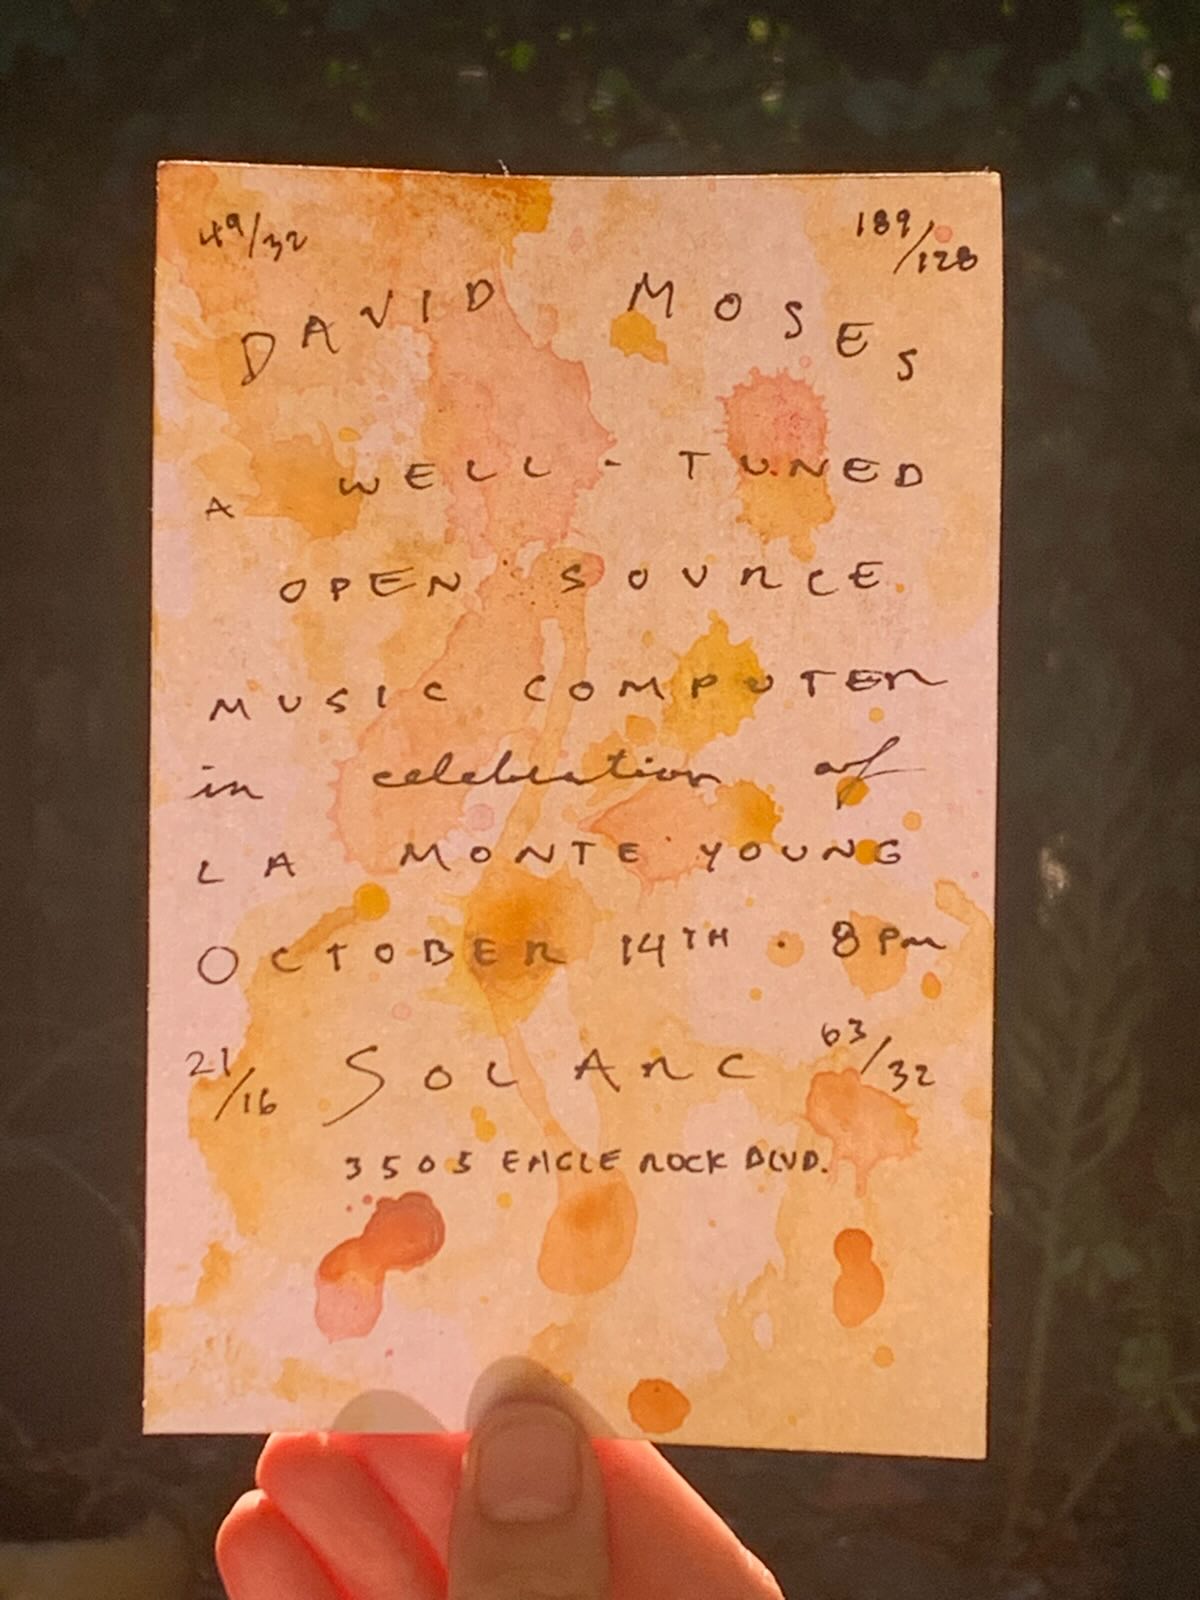 49/32
189/128
DAVID MOSES
A WELL-TUNED
OPEN SOURCE
MUSIC COMPUTER
in celebration of
LA MONTE YOUNG
OCTOBER 14TH · 8PM
21/16
SOL ARC
63/32
3505 EAGLE ROCK BLVD.